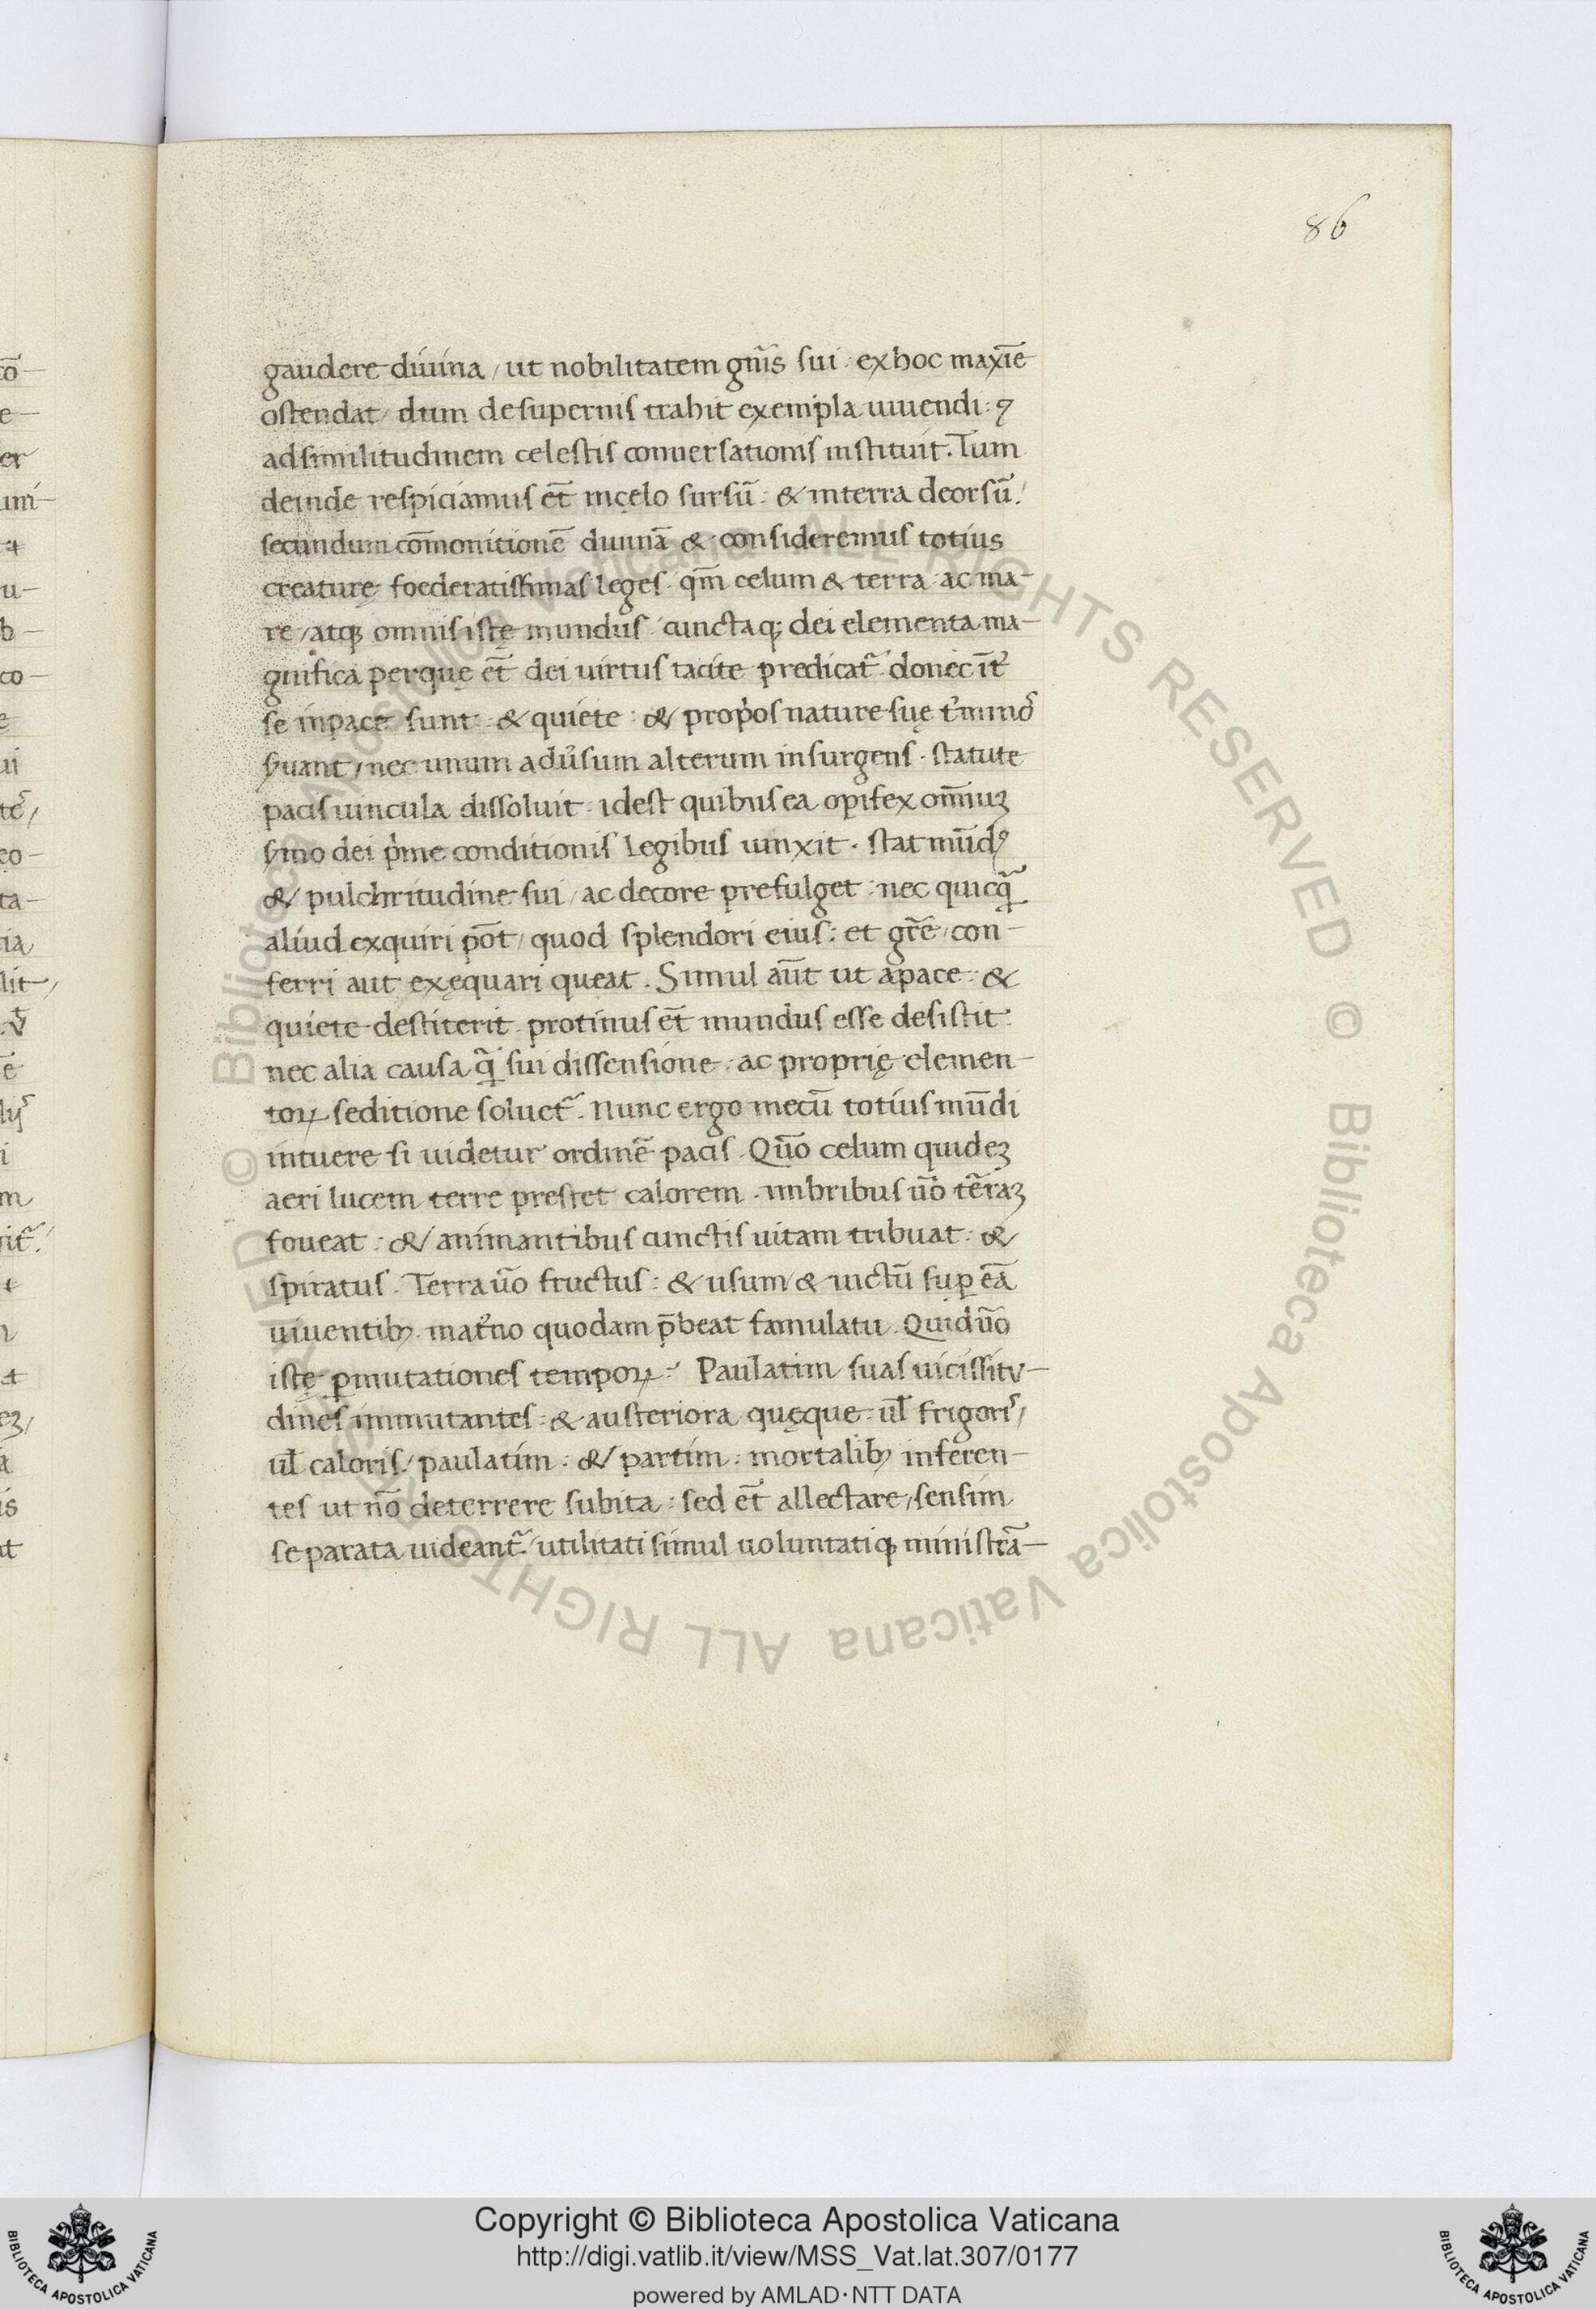 86
gaudere diuina / ut nobilitatem gn̄is sui : ex hoc maxīe
ostendat / dum desupernis trahit exempla uiuendi : ⁊
ad similitudinem celestis conuersationis instituit . Tum
deinde respiciamus et̄ incęlo sursū : & interra deorsū /
secundum cōmonitionē diuinā & consideremus totius
creaturę foederatissimas leges . qm̄ celum & terra ac ma-
re / atq; omnis istę mundus cunctaq; dei elementa ma-
gnifica perquę et̄ dei uirtus tacite predicat᷑ donec īt᷑
se inpace sunt : & quiete : & prop̓os nature suę t᷑mino᷑
s̓uant / nec unum adu̓sum alterum insurgens . statute
pacis uincula dissoluit : idest quibus ea opifex om̄iuꝫ
s̓mo dei p̓me conditionis legibus uinxit . stat mūdꝰ
& pulchritudine sui / ac decore prefulget : nec quicq̄
aliud exquiri pōt / quod splendori eius : et gr̄e / con-
ferri aut exęquari queat . Simul aūt ut apace : &
quiete destiterit . protinus et̄ mundus esse desistit :
nec alia causa q̄ sui dissensione : ac proprię elemen-
toꝝ seditione soluet᷑ . Nunc ergo mecū totius mūdi
intuere si uidetur ordinē pacis . Quō celum quideꝫ
aeri lucem terre prestet calorem . imbribus ūo tēraꝫ
foueat : & animantibus cunctis uitam tribuat : &
spiratus . Terra ūo fructus : & usum / & uictū suꝑ eā
uiuentibꝰ . mat᷑no quodam p̄beat famulatu . Quid ūo
istę ꝑmutationes tempoꝝ : Paulatim suas uicissitu-
dines immutantes : & austeriora quęque : ul̄ frigoris /
ul̄ caloris / paulatim : & partim : mortalibꝰ inferen-
tes ut nō deterrere subita : sed et̄ allectare / sensim
separata uideant᷑ / utilitati simul uoluntatiq; ministrā-
Copyright © Biblioteca Apostolica Vaticana
http://digi.vatlib.it/view/MSS_Vat.lat.307/0177
powered by AMLAD·NTT DATA
BIBLIOTECA APOSTOLICA VATICANA
BIBLIOTECA APOSTOLICA VATICANA
© Biblioteca Apostolica Vaticana ALL RIGHTS RESERVED © Biblioteca Apostolica Vaticana ALL RIGHTS RESERVED